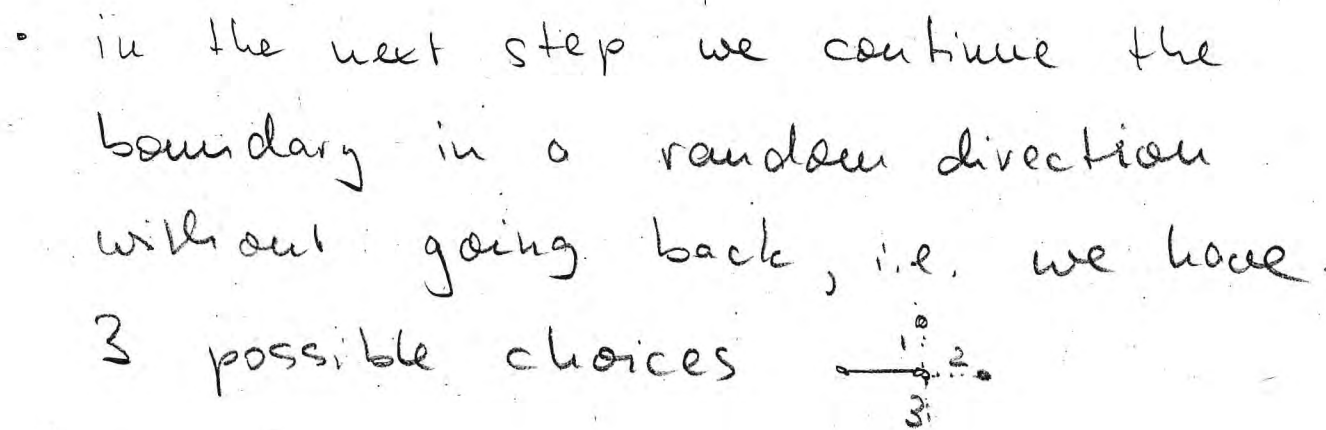 • in the next step we continue the
boundary in a random direction
without going back, i.e. we have
3 possible choices 1 2 3